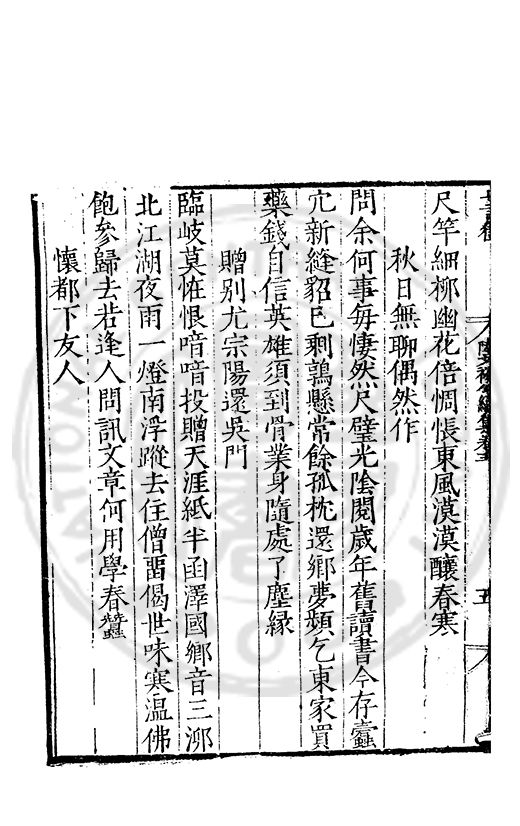 尺竿細柳幽花倍惆悵東風漠漠釀春寒
秋日無聊偶然作
問余何事每悽然尺璧光陰閱歲年舊讀書今存蠹
穴新縫貂已剩鶉懸常餘孤枕還鄉夢頻乞東家買
藥錢自信英雄須到骨業身隨處了塵緣
贈別尤宗陽還吳門
臨岐莫怪恨喑喑投贈天涯紙半函澤國鄉音三泖
北江湖夜雨一燈南浮蹤去住僧畱偈世味寒溫佛
飽參歸去若逢人問訊文章何用學春蠶
懷都下友人